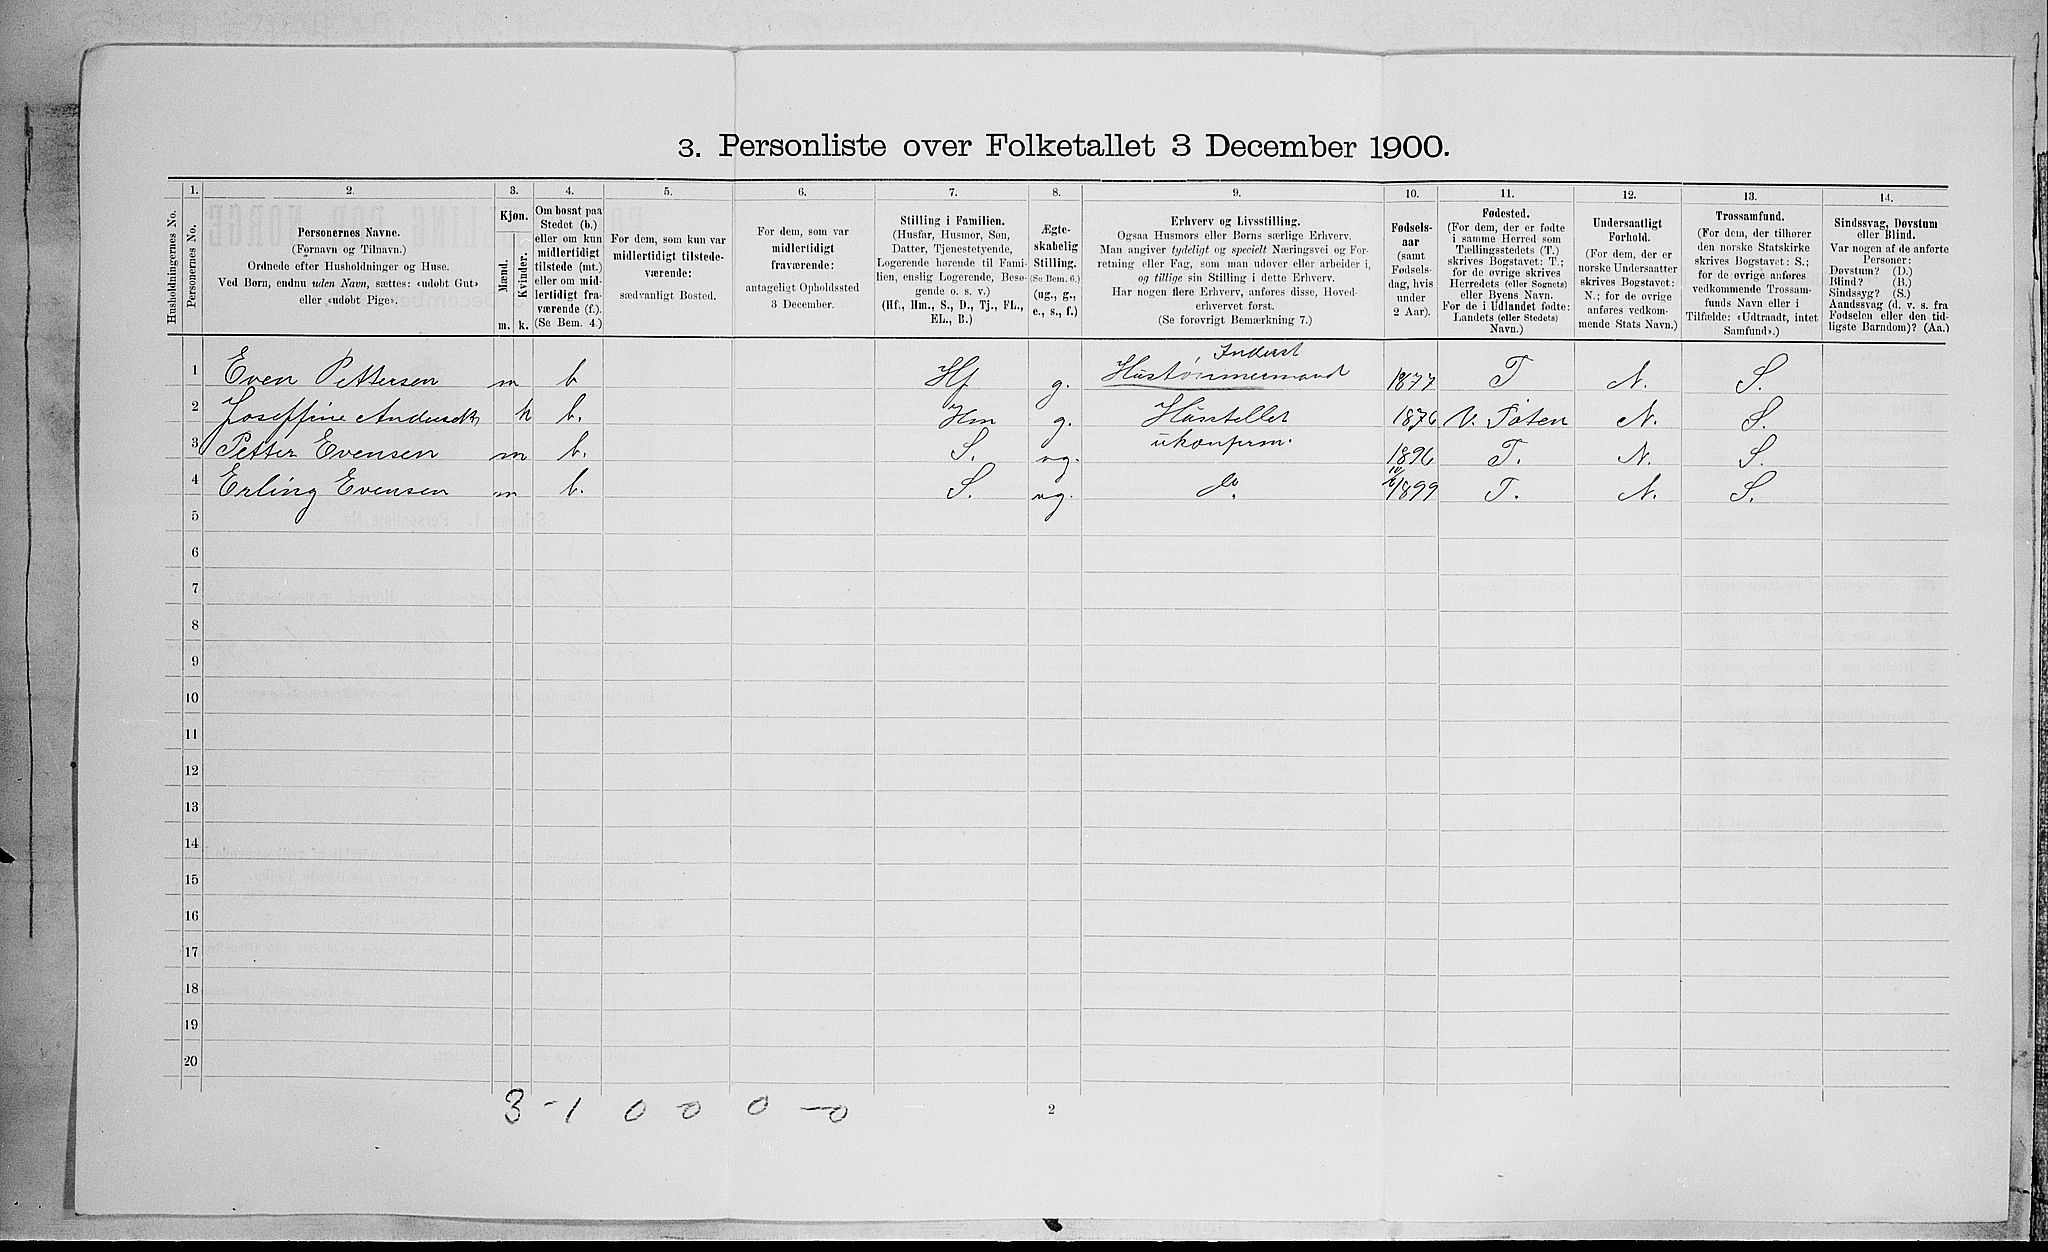 3. Personliste over Folketallet 3 December 1900.
1. 2. 3. 4. 5. 6. 7. 8. 9. 10. 11. 12. 13. 14.
Husholdningernes No.
Personernes No.
Personernes Navne.
(Fornavn og Tilnavn.)
Ordnede efter Husholdninger og Huse.
Ved Børn, endnu uden Navn, sættes: «udøbt Gut»
eller «udøbt Pige».
Kjøn.
Mænd.
Kvinder.
m. k.
Om bosat paa
Stedet (b.)
eller om kun
midlertidigt
tilstede (mt.)
eller om mid-
lertidigt fra-
værende (f.).
(Se Bem. 4.)
For dem, som kun var
midlertidigt tilstede-
værende:
sædvanligt Bosted.
For dem, som var
midlertidigt
fraværende:
antageligt Opholdssted
3 December.
Stilling i Familien.
(Husfar, Husmor, Søn,
Datter, Tjenestetyende,
Logerende hørende til Fami-
lien, enslig Logerende, Besø-
gende o. s. v.)
(Hf., Hm., S., D., Tj., FL.,
EL., B.)
Ægte-
skabelig
Stilling.
(Se Bem. 6.)
(ug., g.,
e., s., f.)
Erhverv og Livsstilling.
Ogsaa Husmors eller Børns særlige Erhverv.
Man angiver tydeligt og specielt Næringsvei og For-
retning eller Fag, som man udøver eller arbeider i,
og tillige sin Stilling i dette Erhverv.
Har nogen flere Erhverv, anføres disse, Hoved-
erhvervet først.
(Se forøvrigt Bemærkning 7.)
Fødsels-
aar
(samt
Fødsels-
dag, hvis
under
2 Aar).
Fødested.
(For dem, der er fødte
i samme Herred som
Tællingsstedets (T.)
skrives Bogstavet: T.;
for de øvrige skrives
Herredets (eller Sognets)
eller Byens Navn.
For de i Udlandet fødte:
Landets (eller Stedets)
Navn.)
Undersaatligt
Forhold.
(For dem, der er
norske Undersaatter
skrives Bogstavet:
N.; for de øvrige
anføres vedkom-
mende Stats Navn.)
Trossamfund.
(For dem, der tilhører
den norske Statskirke
skrives Bogstavet: S.;
for de øvrige anføres
vedkommende Trossam-
funds Navn eller i
Tilfælde: «Udtraadt, intet
Samfund».)
Sindssvag, Døvstum
eller Blind.
Var nogen af de anførte
Personer:
Døvstum? (D.)
Blind? (B.)
Sindssyg? (S.)
Aandssvag (d. v. s. fra
Fødselen eller den tid-
ligste Barndom)? (Aa.)
1 Even Pettersen m b Hf g. Hustømmermand 1877 T N. S.
2 Joseffine k b. Hm g. Husstellet 1876 V. Toten N. S.
3 Petter Evensen m b. S. ug. ukonfirm. 1896 T. N. S.
4 Erling Evensen m b. S. ug. do 1899 T. N. S.
5
6
7
8
9
10
11
12
13
14
15
16
17
18
19
20
3 - 1 0 0 0 - 0
2